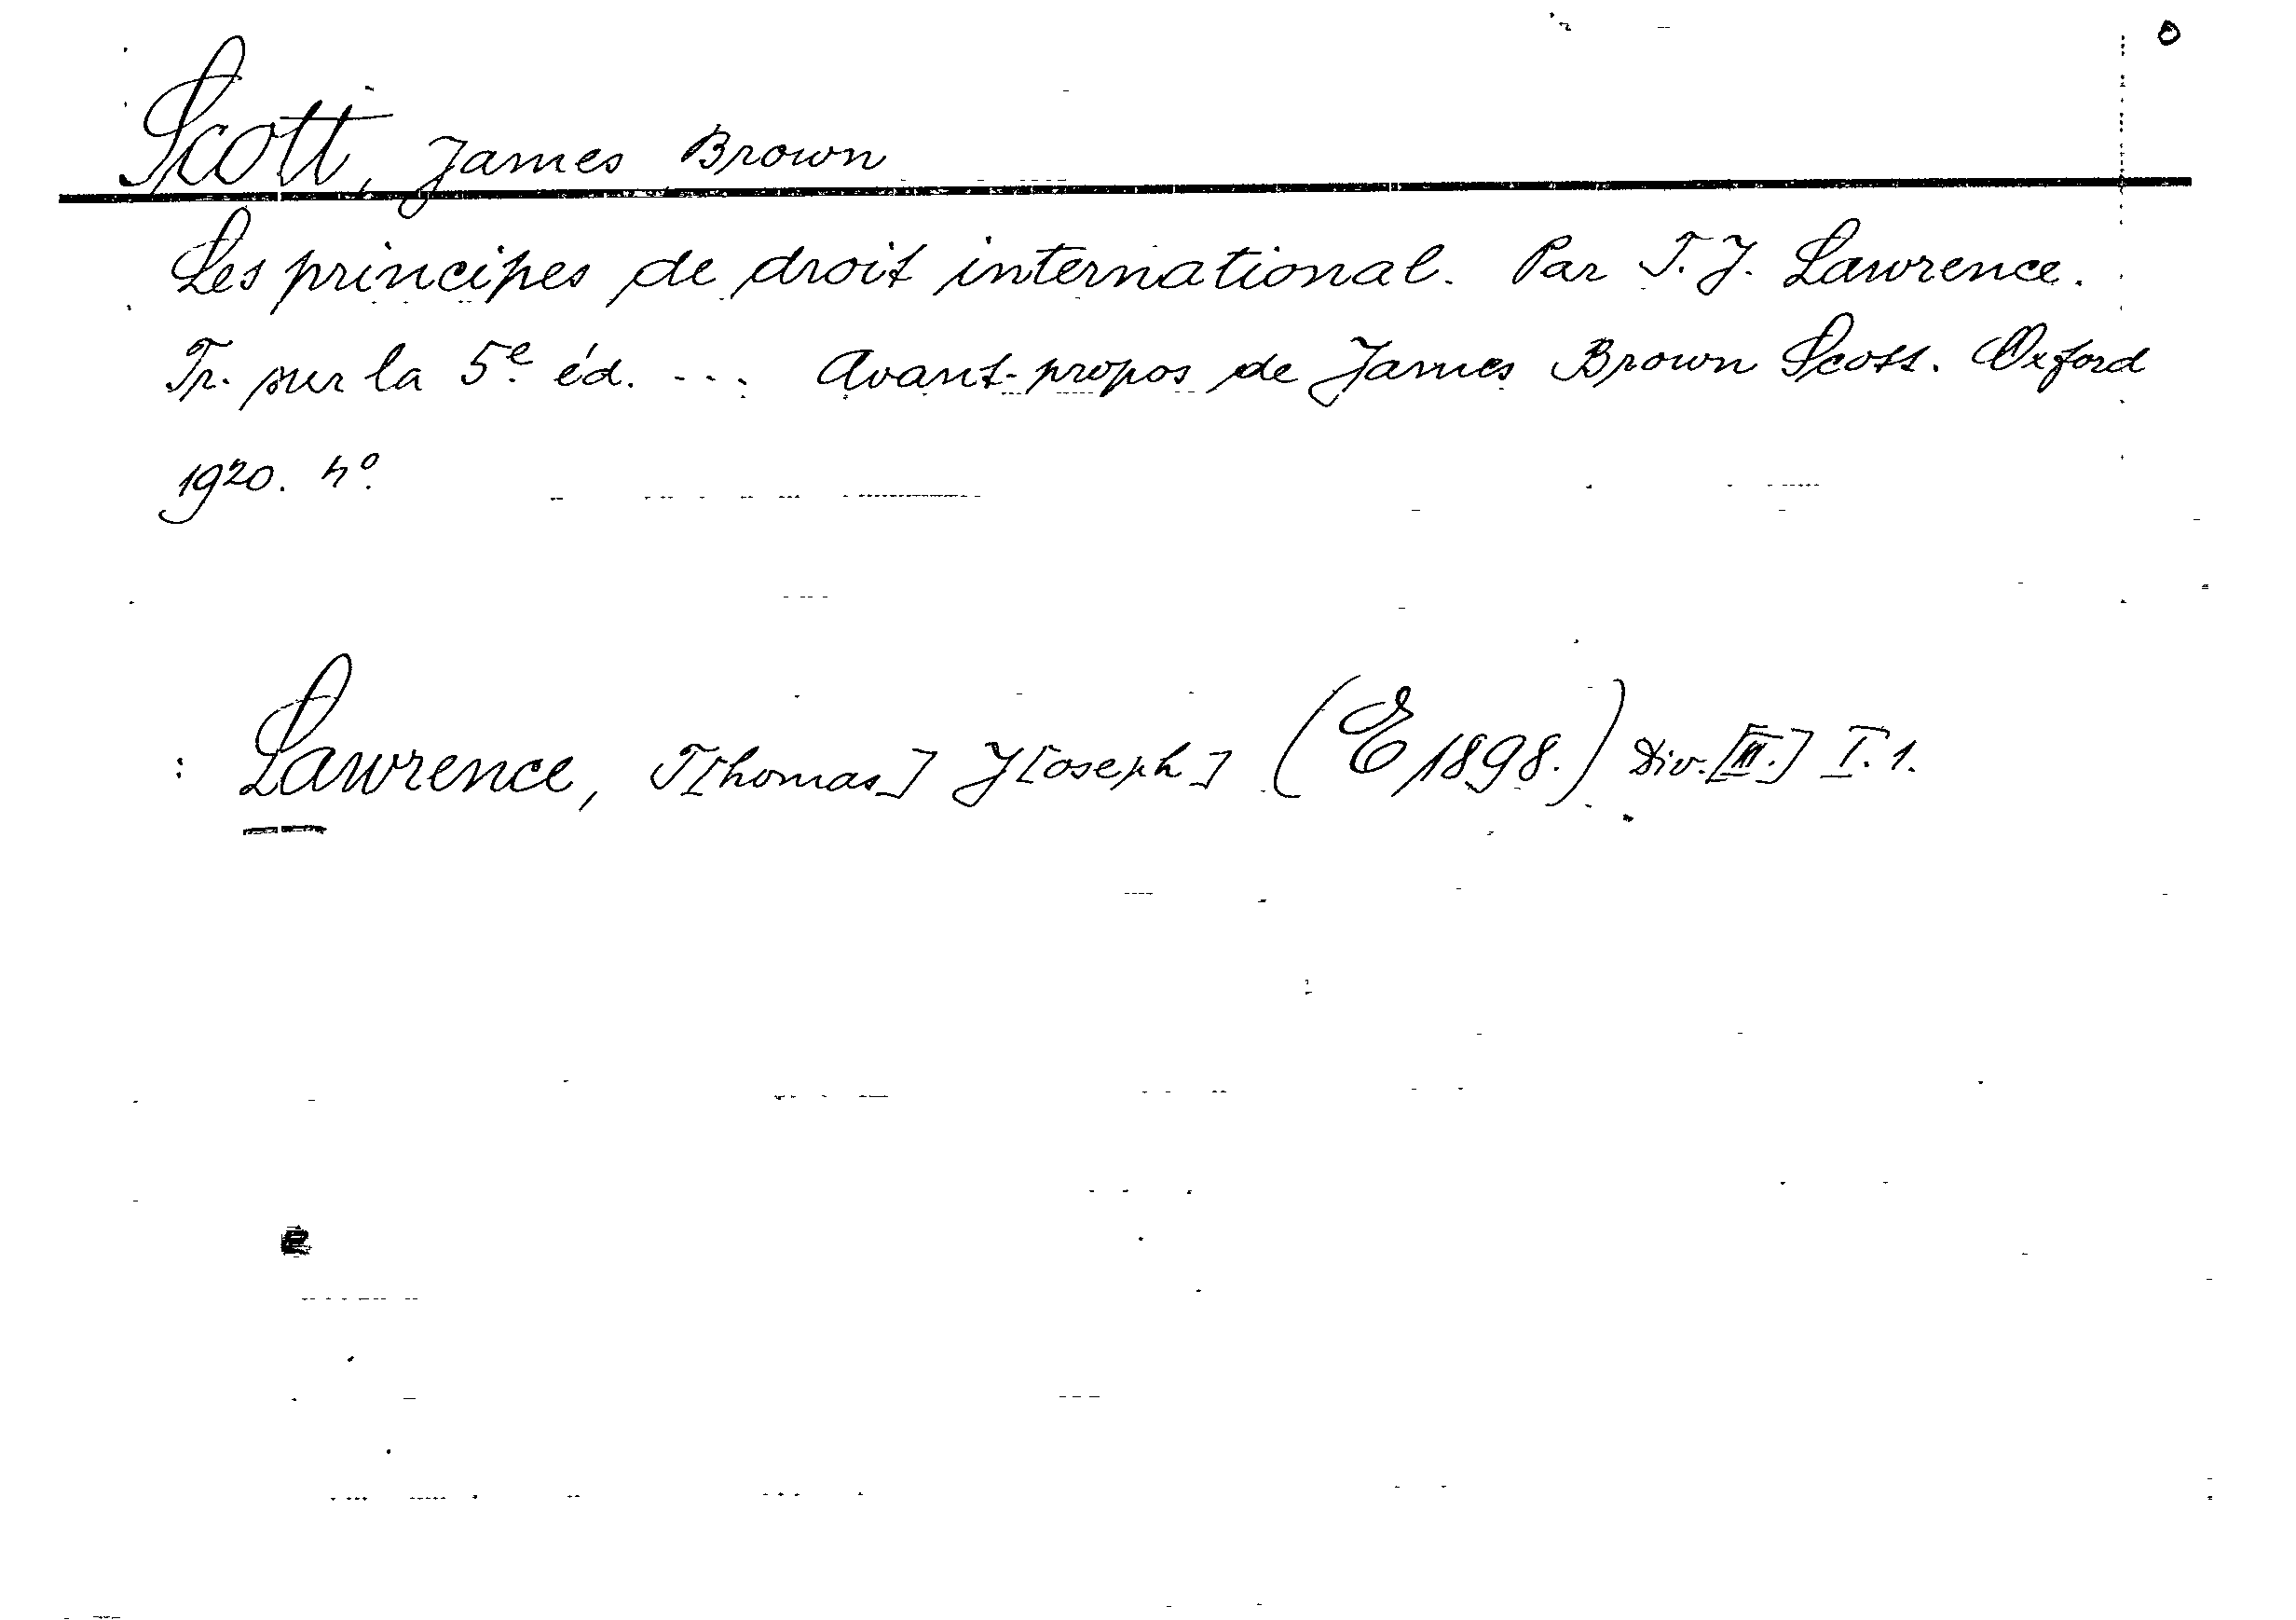 Scott, James Brown
Les principes de droit international. Par T. J. Lawrence.
Tr. sur la 5e éd. ... Avant-propos de James Brown Scott. Oxford
1920. 4o.
: Lawrence, T[homas] J[oseph] (E 1898.) Div. [III.] I. 1.